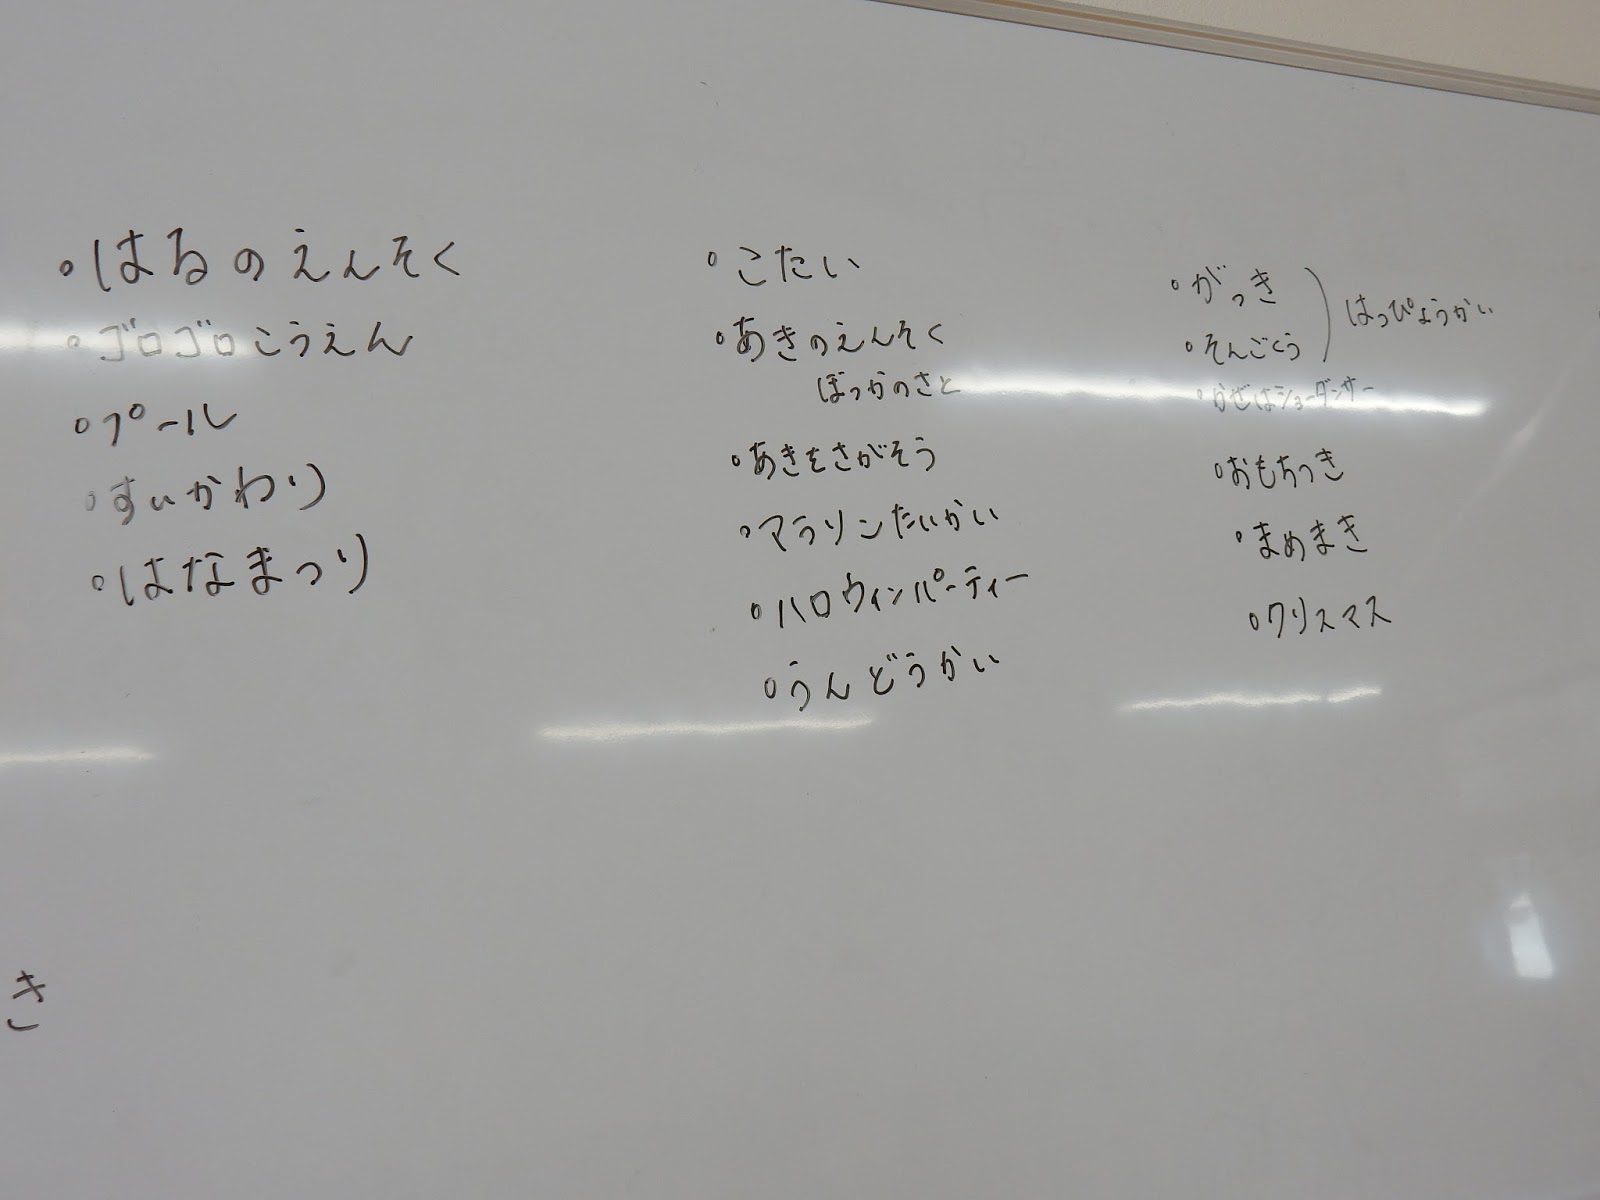 ・はるのえんそく
・ゴロゴロこうえん
・プール
・すいかわり
・はなまつり
・こたい
・あきのえんそく
ぼっかのさと
・あきをさがそう
・マラソンたいかい
・ハロウィンパーティー
・うんどうかい
・がっき
・そんごくう
はっぴょうかい
・かぜはショーダンサー
・おもちつき
・まめまき
・クリスマス
き